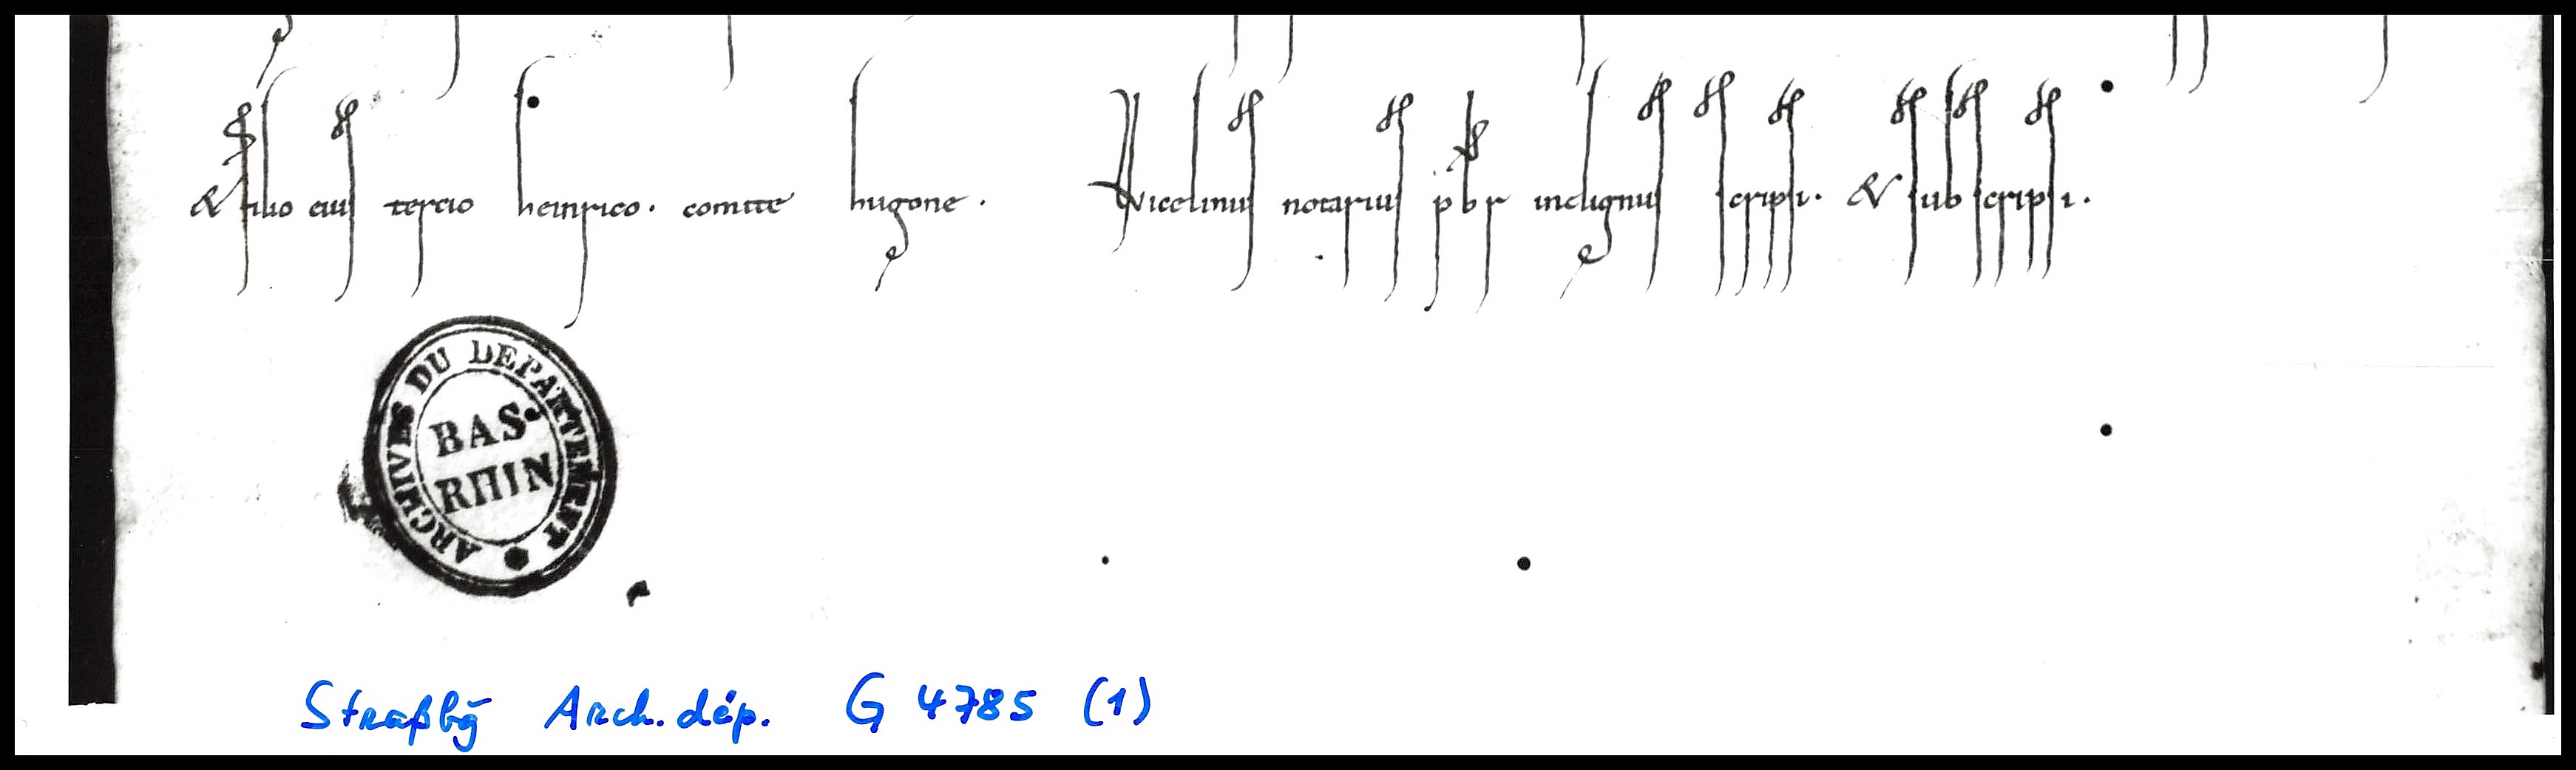 & filio eius tercio heinrico. comite hugone. Vuicelinus notarius pbr indignus scripsi. & subscripsi.
ARCHIVES DU DEPARTEMENT
BAS-
RHIN
Straßbg Arch. dép. G 4785 (1)